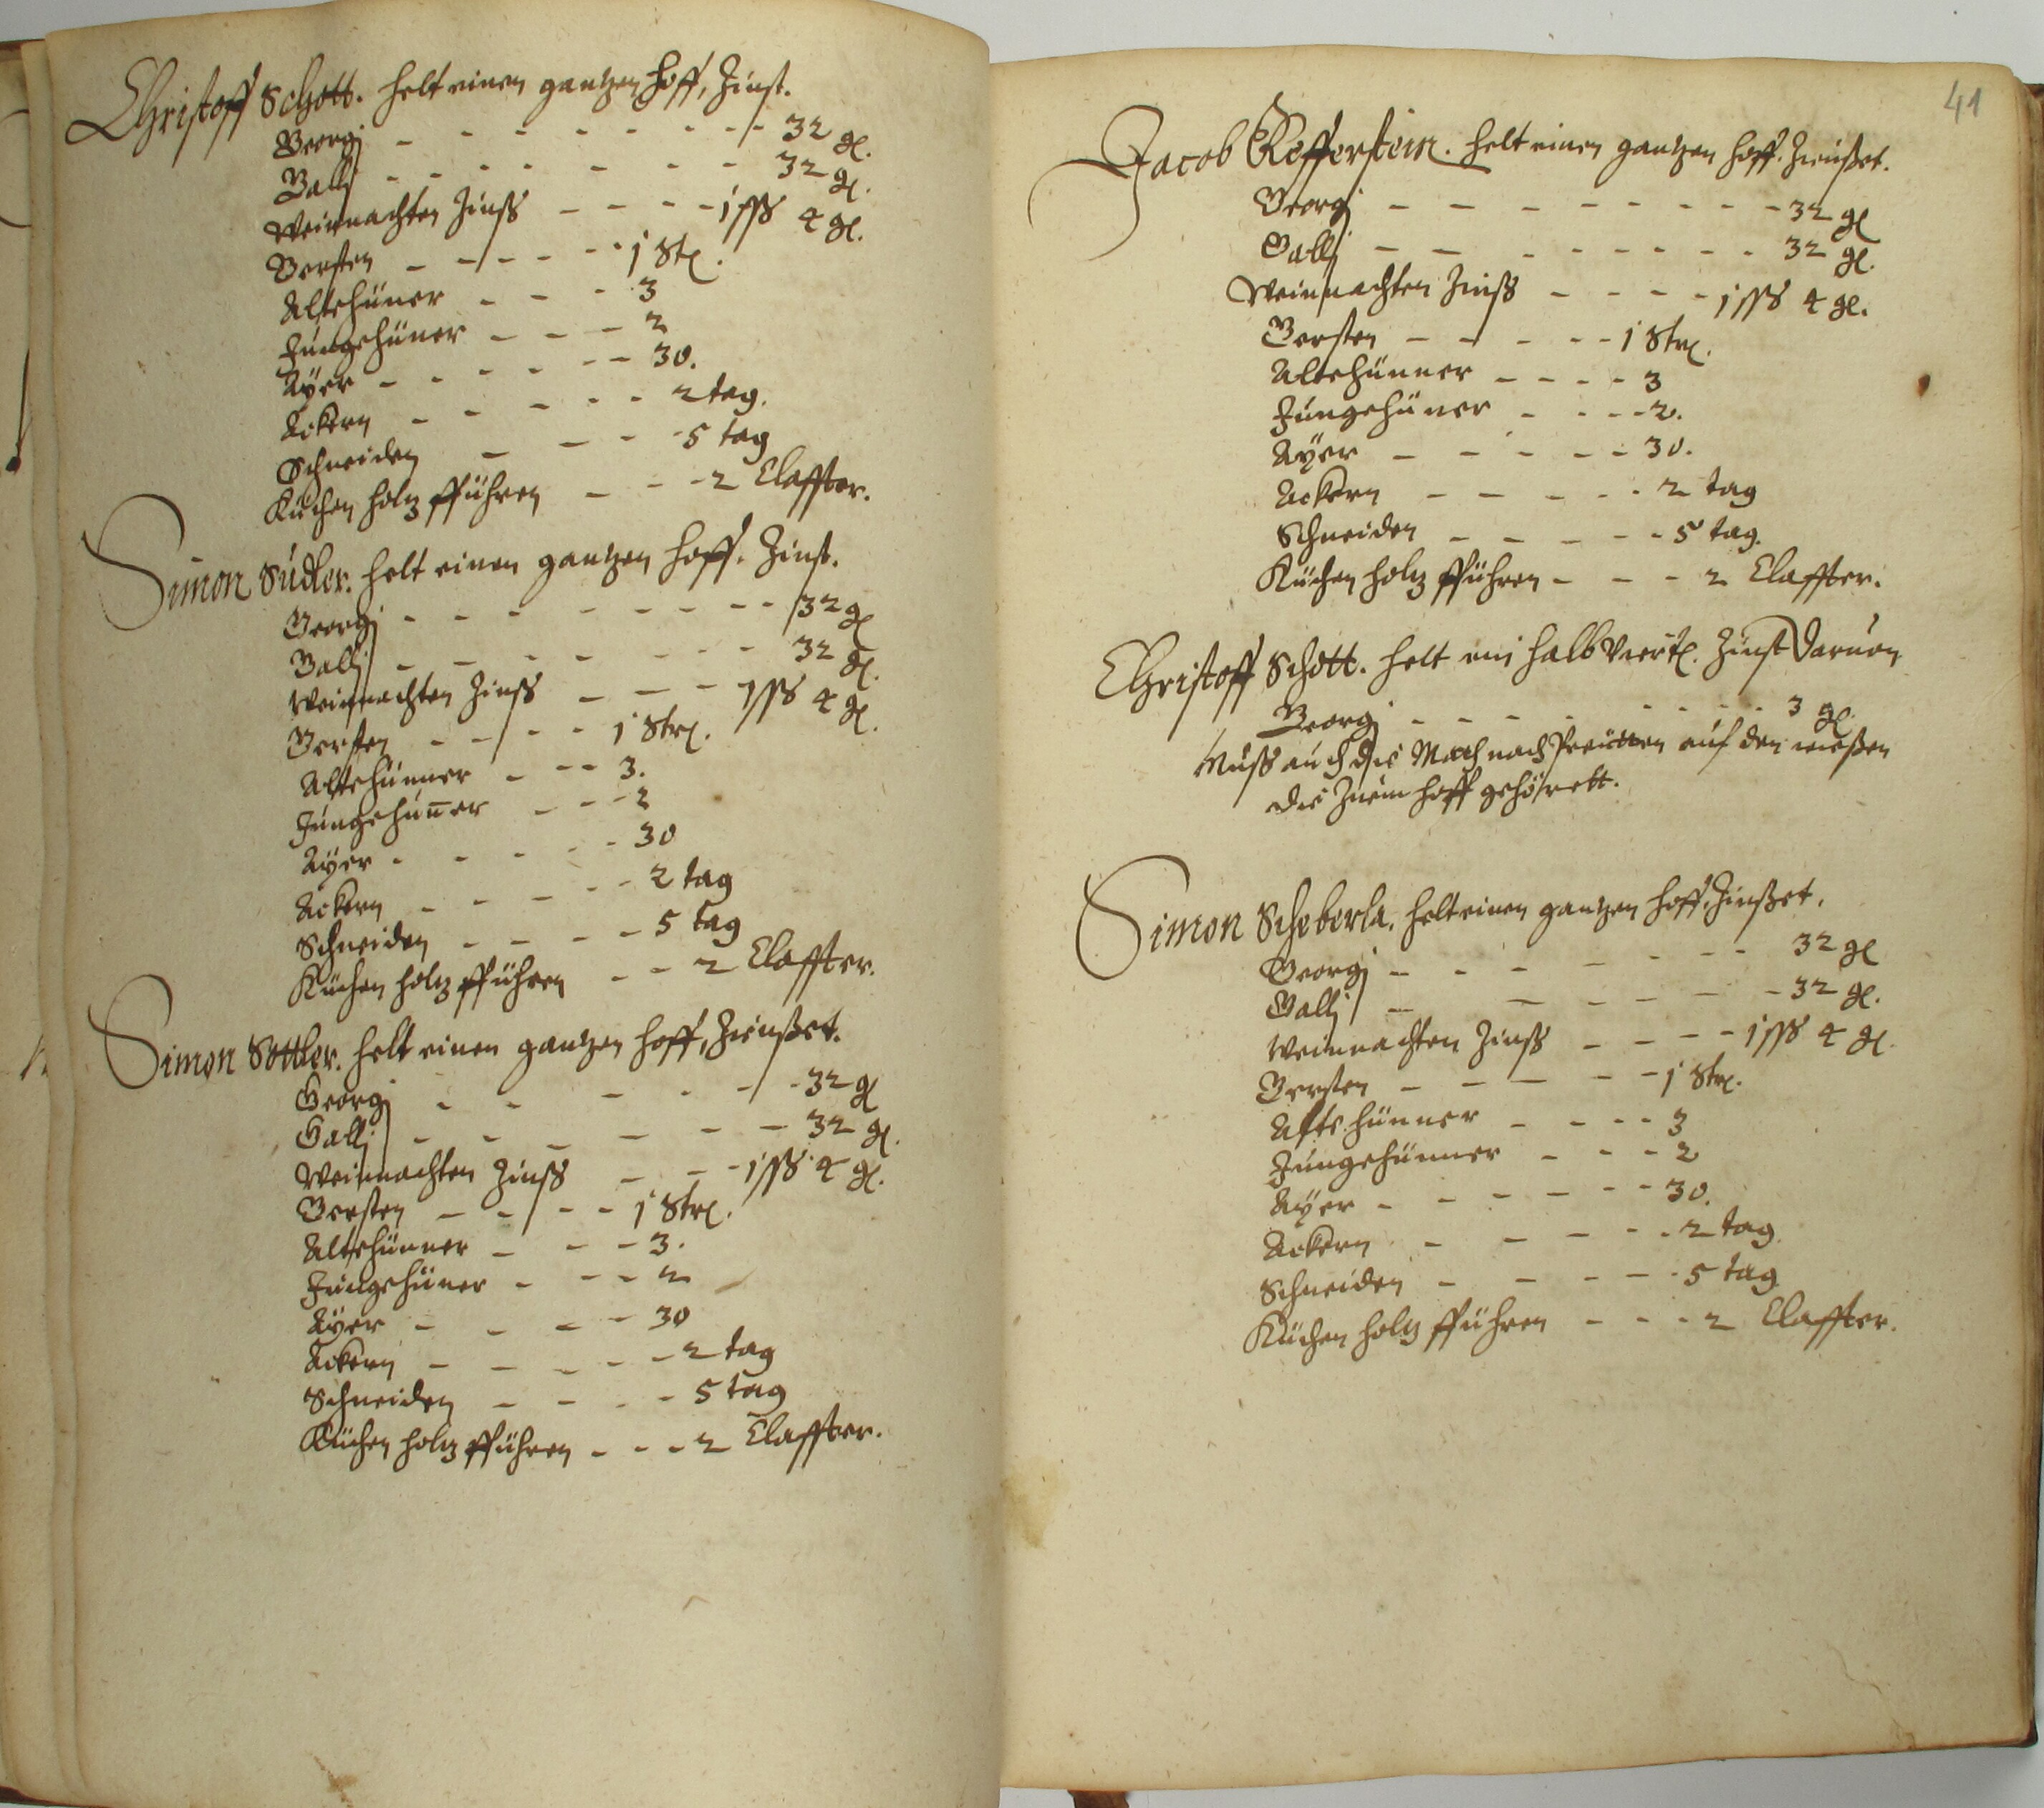 Christoff Schott. helt einen gantzen hoff, Zinst.
Georgj - - - - - - - - 32 gl.
Gallj - - - - - - - 32 gl.
Weinnachten Zinß - - - - 1 ßß 4 gl.
Gersten - - - - - 1 Str.
Altehüner - - - 3
Jungehüner - - - 2
Ayer - - - - - 30.
Ackern - - - - - 2 tag.
Schneiden - - - 5 tag
Küchen holtz fführen - - - 2 Claffter.
Simon Sudler. helt einen gantzen hoff. Zinst.
Georgj - - - - - - - - 32 gl
Gallj - - - - - - - 32 gl.
Weinnachten Zinß - - - 1 ßß 4 gl.
Gersten - - - - 1 Str.
Altehünner - - - 3.
Jungehuner - - - 2
Ayer - - - - - 30
Ackern - - - - - 2 tag
Schneiden - - - - 5 tag
Küchen holtz fführen - - 2 Claffter.
Simon Sottler. helt einen gantzen hoff, Zienßet.
Georgj - - - - - - 32 gl
Gallj - - - - - - 32 gl.
Weinnachten Zinß - - - 1 ßß 4 gl.
Gersten - - - - 1 Str.
Altehünner - - - 3.
Jungehüner - - - 2
Ayer - - - - 30
Ackern - - - - - 2 tag
Schneiden - - - - 5 tag
Küchen holtz fführen - - - 2 Claffter.
41
Jacob Kefferstein. helt einen gantzen hoff. Zienßet.
Georgj - - - - - - - - 32 gl
Gallj - - - - - - - - 32 gl.
Weinnachten Zinß - - - - 1 ßß 4 gl.
Gersten - - - - - 1 Str.
Altehünner - - - - 3
Jungehüner - - - - 2.
Ayer - - - - - 30.
Ackern - - - - - 2 tag
Schneiden - - - - - 5 tag.
Küchen holtz fführen - - - 2 Claffter.
Christoff Schott. helt ein halb Viertl. Zinst Daruon
Georgj - - - - - - - - 3 gl.
Muß auch die nach auf den wießen
die Zuem hoff gehörett.
Simon Scheberla. helt einen gantzen hoff, Zinßet.
Georgj - - - - - - - 32 gl
Gallj - - - - - - 32 gl.
Weinnachten Zinß - - - - 1 ßß 4 gl.
Gersten - - - - - 1 Str.
Alte hünner - - - - 3
Jungehünner - - - 2
Ayer - - - - - - 30.
Ackern - - - - - 2 tag
Schneiden - - - - - 5 tag
Küchen holtz fführen - - - 2 Claffter.